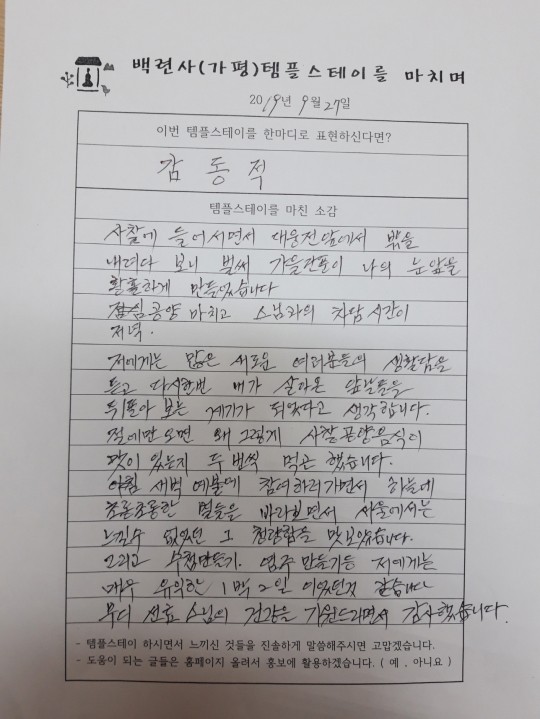 백련사(가평)템플스테이를 마치며
2019년 9월 27일
이번 템플스테이를 한마디로 표현하신다면?
감 동 적
템플스테이를 마친 소감
사찰에 들어서면서 대웅전앞에서 밖을
내려다 보니 벌써 가을단풍이 나의 눈앞을
황홀하게 만들었습니다
공양 마치고 스님과의 차담시간이
저녁.
저에게는 많은 새로운 여러분들의 생활담을
듣고 다시한번 내가 살아온 앞날들을
뒤돌아 보는 계기가 되었다고 생각합니다.
절에만오면 왜그렇게 사찰공양음식이
맛이 있는지 두번씩 먹곤 했습니다.
새벽 예불에 참여하러가면서 하늘에
초롱초롱한 별들을 바라보면서 서울에서는
느낄수 없었던 그 천량함을 맛보았습니다.
그리고 수첩만들기. 염주 만들기등 저에게는
매우 유익한 1박2일 이었던것 같습니다
부디 선효 스님의 건강을 기원드리면서 감사했습니다.
- 템플스테이 하시면서 느끼신 것들을 진솔하게 말씀해주시면 고맙겠습니다.
- 도움이 되는 글들은 홈페이지 올려서 홍보에 활용하겠습니다. ( 예 , 아니요 )